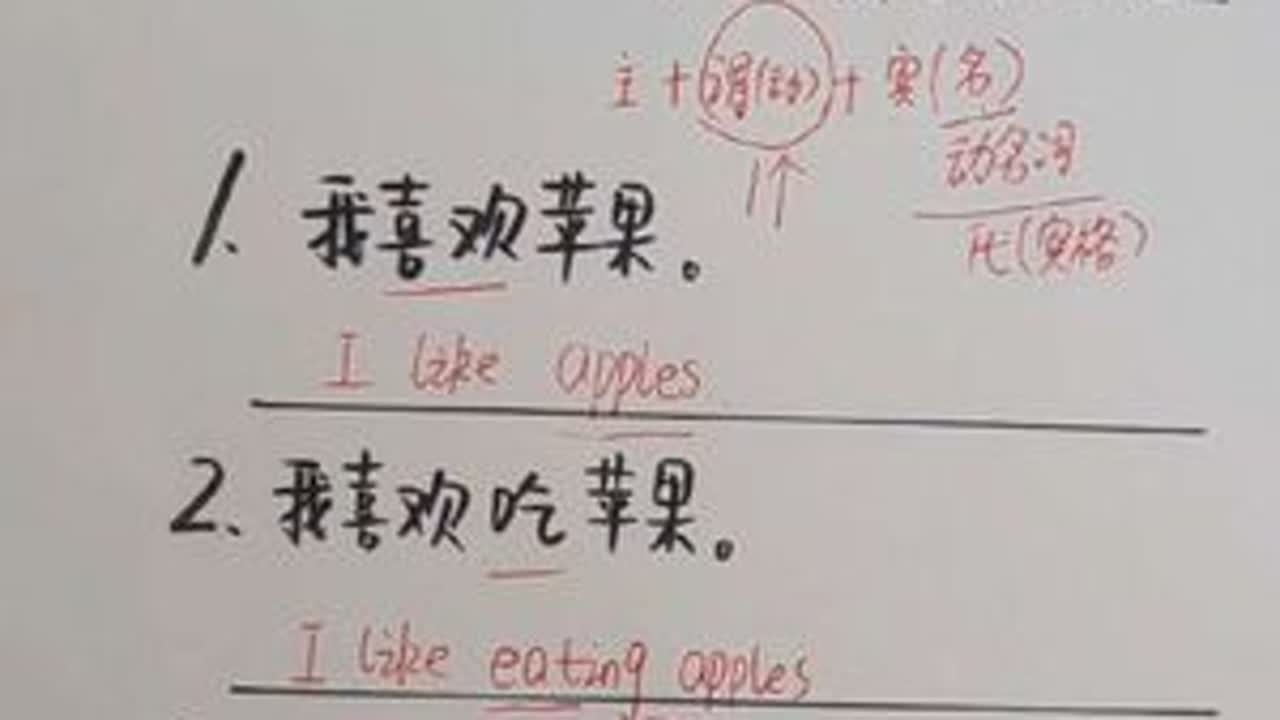 主+谓(动)+宾(名)
1个
动名词
代(宾格)
1、我喜欢苹果。
I like apples
2、我喜欢吃苹果。
I like eating apples